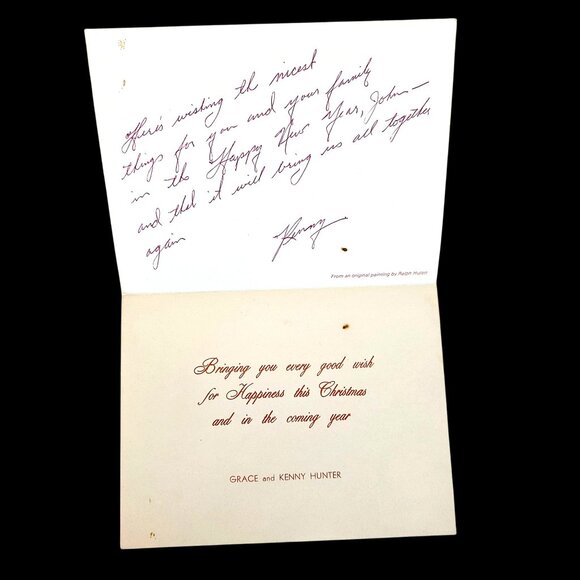 Here's wishing th nicest
things for you and your family
in the Happy New Year, John —
and that it will bring us all together
again
Kenny
From an original painting by Ralph Hulett
Bringing you every good wish
for Happiness this Christmas
and in the coming year
GRACE and KENNY HUNTER